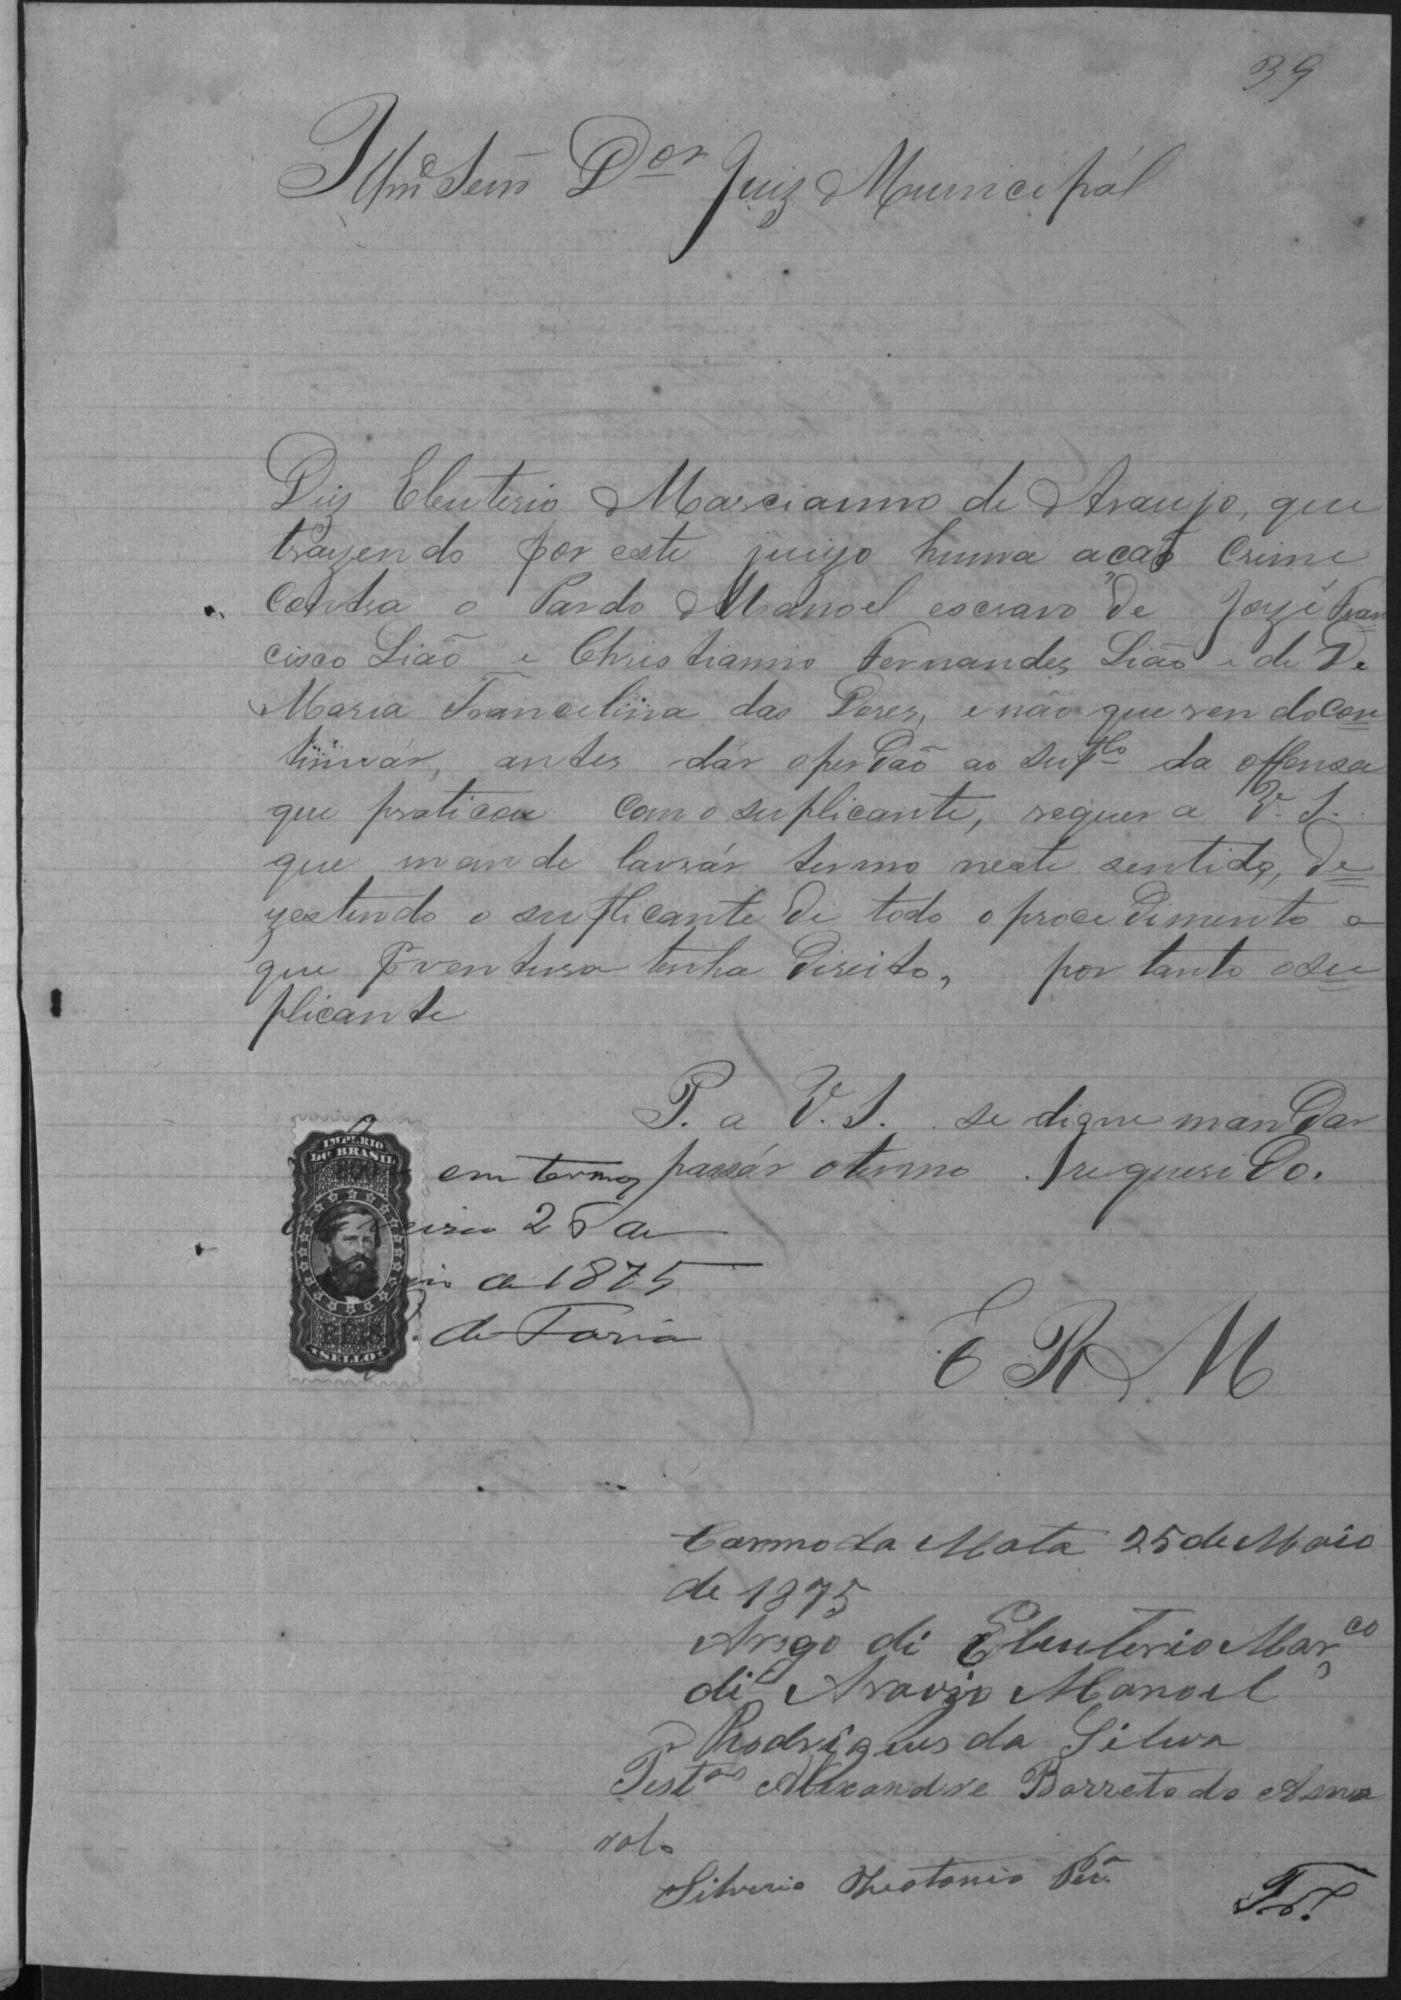 39
Illmº Senr Dor Juiz Municipál
Diz Eleuterio Marcianno de Araujo, que
trazendo por este juizo huma acaõ Crime
Contra o Pardo Manoel escravo de Jozé Fran
cisco Lião e Christianno Fernandes Lião e de De
Maria Francelina das Dores, e não querendo con
tinuár, antes dár o perdão ao supdo da offensa
que praticou com o suplicante, requer a V. S.
que mande lavrár termo neste sentido, de
zestindo o suplicante de todo o procedimento a
que Preventura tenha direito, por tanto o su
plicante
P. a V. S. se digne mandar
passár o termo requerido.
IMPERIO
DO BRASIL
em termos
25 de
de 1875
de Faria
REIS
SELLO
E R M
Carmo da Mata 25 de Maio
de 1875
Arogo di Eleuterio Marco
di Araujo Manoel
Rodrigues da Silva
Testas Alexandre Barreto do Ama
ral.
Silverio Theotonio Pera